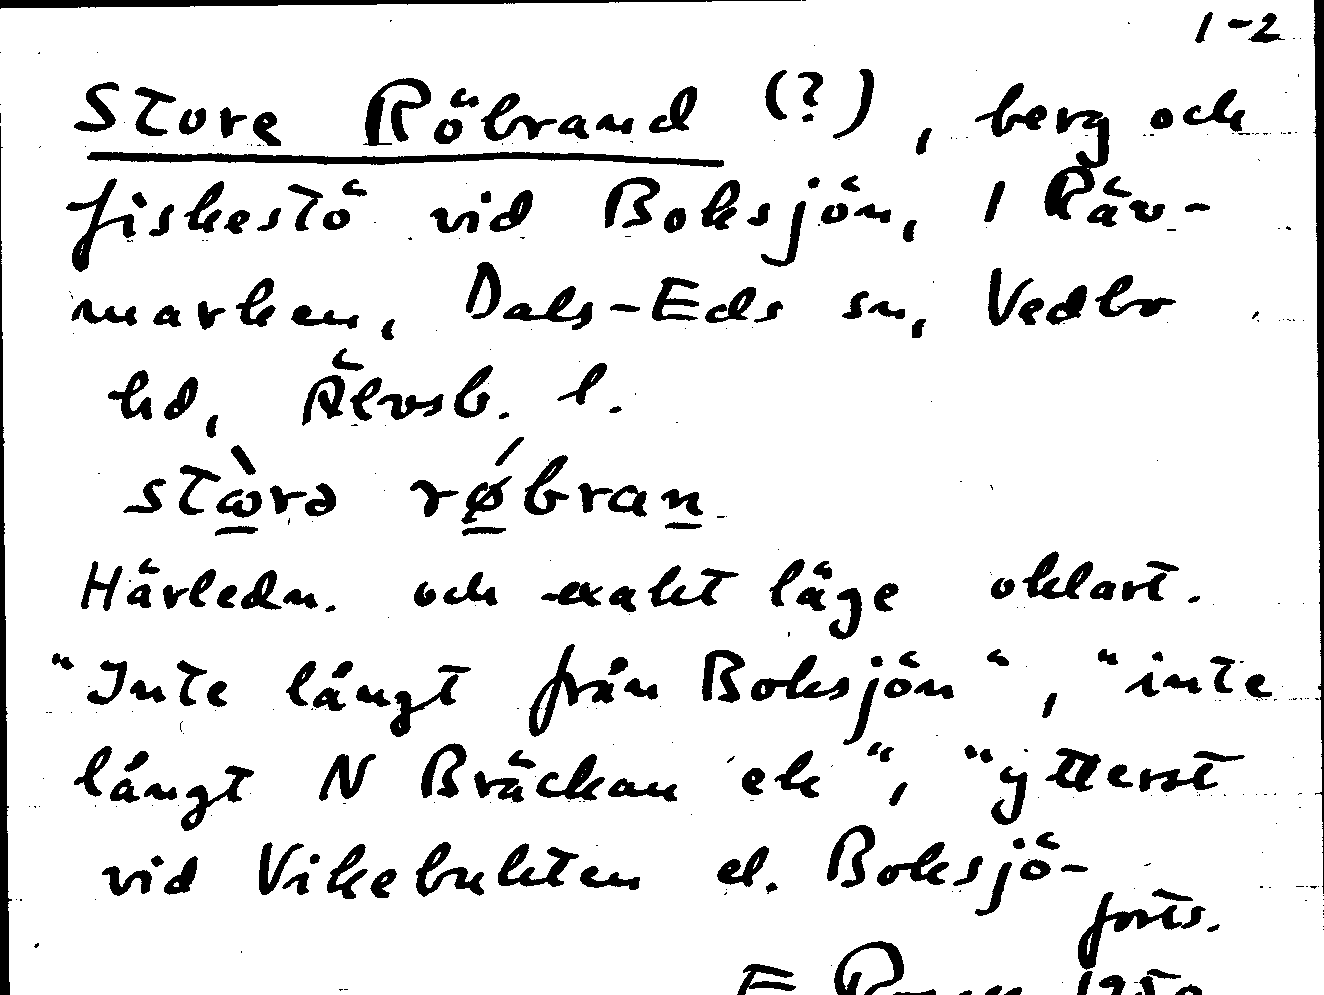 1-2
Store Röbrand (?), berg och
fiskestö vid Boksjön, 1 Räv-
marken, Dals-Eds sn, Vedbo
hd, Älvsb. l.
stὼ̲rə rǿ̲bran̲
Härledn. och exakt läge oklart.
"Inte långt från Boksjön", "inte
långt N Bräckan ek", "ytterst
vid Vikebukten el. Boksjö-
forts.